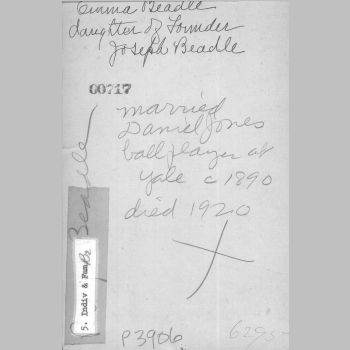 Emma Beadle
daughter of Founder
Joseph Beadle
00717
married
Daniel Jones
ball player at
Yale c 1890
died 1920
Beadle
5. Indiv & Fam/Bz
P3906
6295